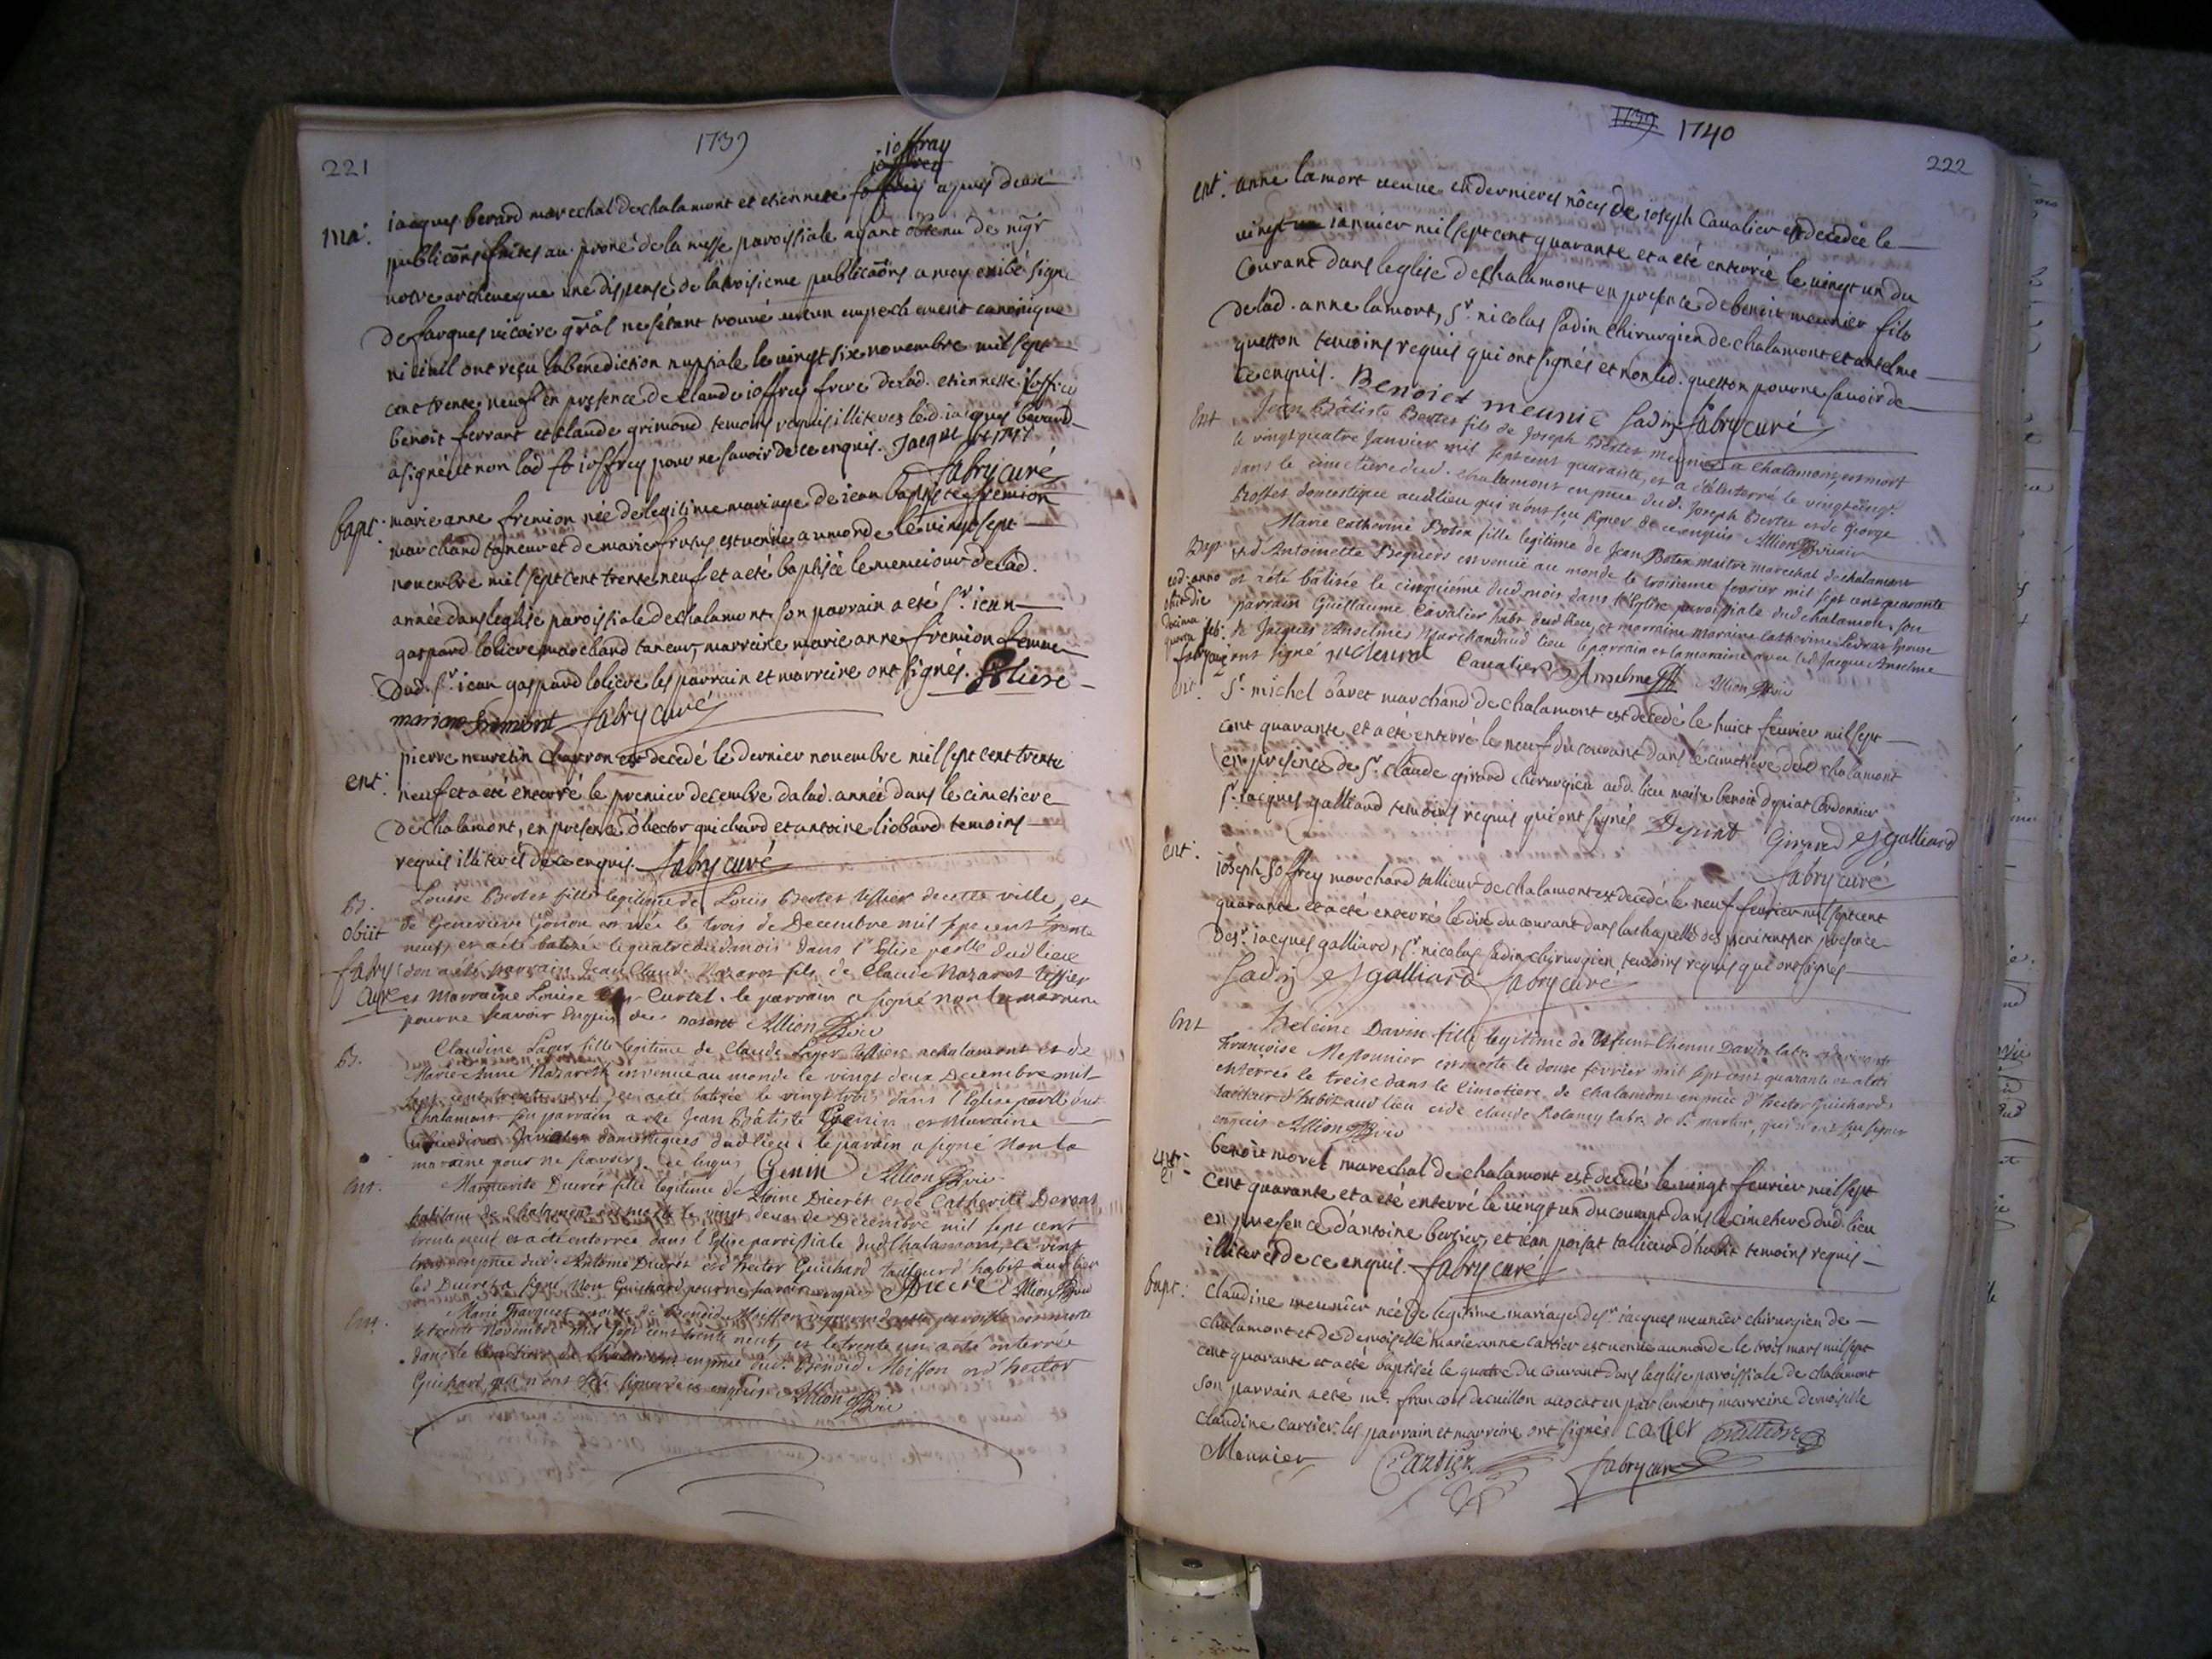 1739
221
ioffray
joffrey
ma. jacques berard marechal de chalamont et etiennete joffrey apres deux
publicõns faites au prone de la messe paroissiale ayant obtenu de mgr
notre archeveque une dispense de la troisieme publicaõns a moy exibé signé
de farques vicaire gral ne s'étant trouvé aucun empechement canonique
ni civil ont reçu la benediction nuptiale le vingt six novembre mil sept
cent trente neuf en presence de claude joffrey frere de lad. etiennette joffrey
benoit ferrant et claude grimond temoins requis illiterez led. jacques berard
a signé et non lad joffrey pour ne savoir de ce enquis.
fabry curé
bapt. marie anne fremion née de legitime mariage de jean baptiste fremion
marchand taneur et de marie est venüe au monde le vingt sept
novembre mil sept cent trente neuf et a eté baptisée le meme jour de lad.
année dans leglise paroissiale de chalamont son parrain a eté sr. jean
gaspard loliere marchand taneur, marreine marie anne fremion femme
dud. sr. jean gaspard loliere les parrain et marreine ont signés. loliere
mariane fremiont fabry curé
ent. pierre neuretin charron est decedé le dernier novembre mil sept cent trente
neuf et a eté enterré le premier decembre de lad. année dans le cimetiere
de chalamont, en presence d'hector guichard et antoine liobard temoins
requis illiterés de ce enquis. fabry curé
B. Louise Bertet fille legitime de Loüis Bertet tessier de cette ville, et
obiit de Genevieve est née le trois de Decembre mil sept cent trente
neuf, et a été batisée le quatre dud mois dans l'Eglise parlle dud lieu
fabry son a été parrain Jean Claude Nazaret fils de Claude Nazaret tessier
curé et Marraine Loüise Curtet. le parrain a signé non la marraine
pour ne scavoir Enquis de. nazaret Allion Vic
B. Claudine Lager fille legitime de Claude Lager tessier a chalamont et de
Marie Anne Nazareth est venüe au monde le vingt deux Decembre mil
sept cent trente neuf, et a été batisée le vingt trois dans l'Eglise parlle dud
Chalamont son parrain a eté Jean Bâtiste Genin et Marraine
domestiques dud lieu. le parrain a signé Non la
maraine pour ne scavoir de Enquis Genin Allion Vic
Ent. Marguerite Ducret fille legitime de Antoine Ducrét et de Catherine
habitant de Chalamont est morte le vingt deux de Decembre mil sept cent
trente neuf et a été enterrée dans l'Eglise paroissiale dud Chalamont, le vint
trois en pnce dud. Antoine Ducret et d'hector Guichard tailleur d'habit aud lieu
led Ducret a signé Non Guichard pour ne savoir enquis Ducré Allion Vic
Ent. Marie de Benoid Meisson
le trente Novembre mil sept cent trente neuf, et le trente un a été enterrée
dans le Cimetiere de Chalamont en pnce dud. Benoid Meisson et d'hector
Guichard qui n'ont sçeu signer de ce enquis Allion Vic
1739 1740
222
ent. anne lamort veuve en dernieres nôces de joseph Cavalier est decedée le
vingt janvier mil sept cent quarante et a eté enterrée le vingt un du
courant dans leglise de chalamont en presence de benoit meunier fils
de lad. anne lamort, sr. nicolas sadin chirurgien de chalamont et antelme
quetton temoins requis qui ont signés et non led. quetton pour ne savoir de
ce enquis. Benoiet meunié sadin fabry curé
Ent Jean Bâtiste Bertet fils de Joseph Bertet meunier a chalamont, est mort
le vingt quatre Janvier mil sept cent quarante, et a été enterré le vingt cinq
dans le cimetiere dud. chalamont en pnce dud. Joseph Bertet et de George
Brosset domestique aud lieu qui n'ont sçu signer de ce enquis Allion Vicair
Bap. Marie Catherine Botex fille legitime de Jean Botex maitre marechal de chalamont
et d'Antoinette Beguers est venüe au monde le troisieme fevrier mil sept cent quarante
eod. anno et a été batisée le cinquiéme dud mois dans l'Eglise paroissiale dud chalamon. son
obiit die parrain Guillaume Cavalier habt dud lieu, et marraine Catherine Levrat Epouse
decima quarta feb. de Jacques Anselme Marchand aud lieu le parrain et la maraine avec led Jacque Anselme
fabry curé ont signé Cavalier Anselme Allion Vic
ent. sr. michel Savet marchand de chalamont est decedé le huict fevrier mil sept
cent quarante, et a eté enterré le neuf du courant dans le cimetiere dud chalamont
en presence de sr. claude girard chirurgien aud. lieu maitre benoit depiat cordonnier
sr. jacques galliard temoins requis qui ont signés Depiat Girard J galliard
fabry curé
ent. joseph joffrey marchand tallieur de chalamont est decedé le neuf fevrier mil sept cent
quarante et a eté enterré le dix du courant dans la chapelle des penitents en presence
de sr. jacques galliard, sr. nicolas sadin chirurgien temoins requis qui ont signés
Sadin J galliard fabry curé
Ent Heleine Davin fille legitime de défunt Etienne Davin labr. et de
Françoise Messonnier est morte le douse fevrier mil sept cent quarante et a été
enterrée le treise dans le Cimetiere de Chalamont en pnce d'hector Guichard
tailleur d'habit aud lieu et de claude Rolancy labr. de St martin, qui n'ont sçu signer
enquis Allion Vic
ent. benoit morel marechal de chalamont est decedé le vingt fevrier mil sept
cent quarante et a eté enterré le vingt un du courant dans le cimetiere dud. lieu
en presence d'antoine bersier, et jean poisat tallieur d'habit temoins requis
illiterés de ce enquis. fabry curé
bapt. claudine meunier née de legitime mariage de sr. jacques meunier chirurgien de
chalamont et de demoiselle marie anne cartier est venüe au monde le trois mars mil sept
cent quarante et a eté baptisée le quatre du courant dans leglise paroissiale de chalamont
son parrain a eté me. francois decuillon avocat en parlement, marreine demoiselle
claudine cartier les parrain et marreine ont signés
Meunier Cartier fabry curé